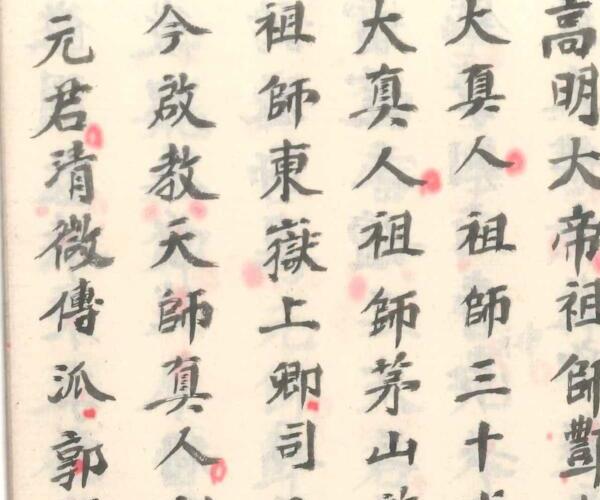 高明大帝祖師酆
大真人祖師三十
大真人祖師茅山
祖師東嶽上卿司
今啟教天師真人
元君清微傳派郭